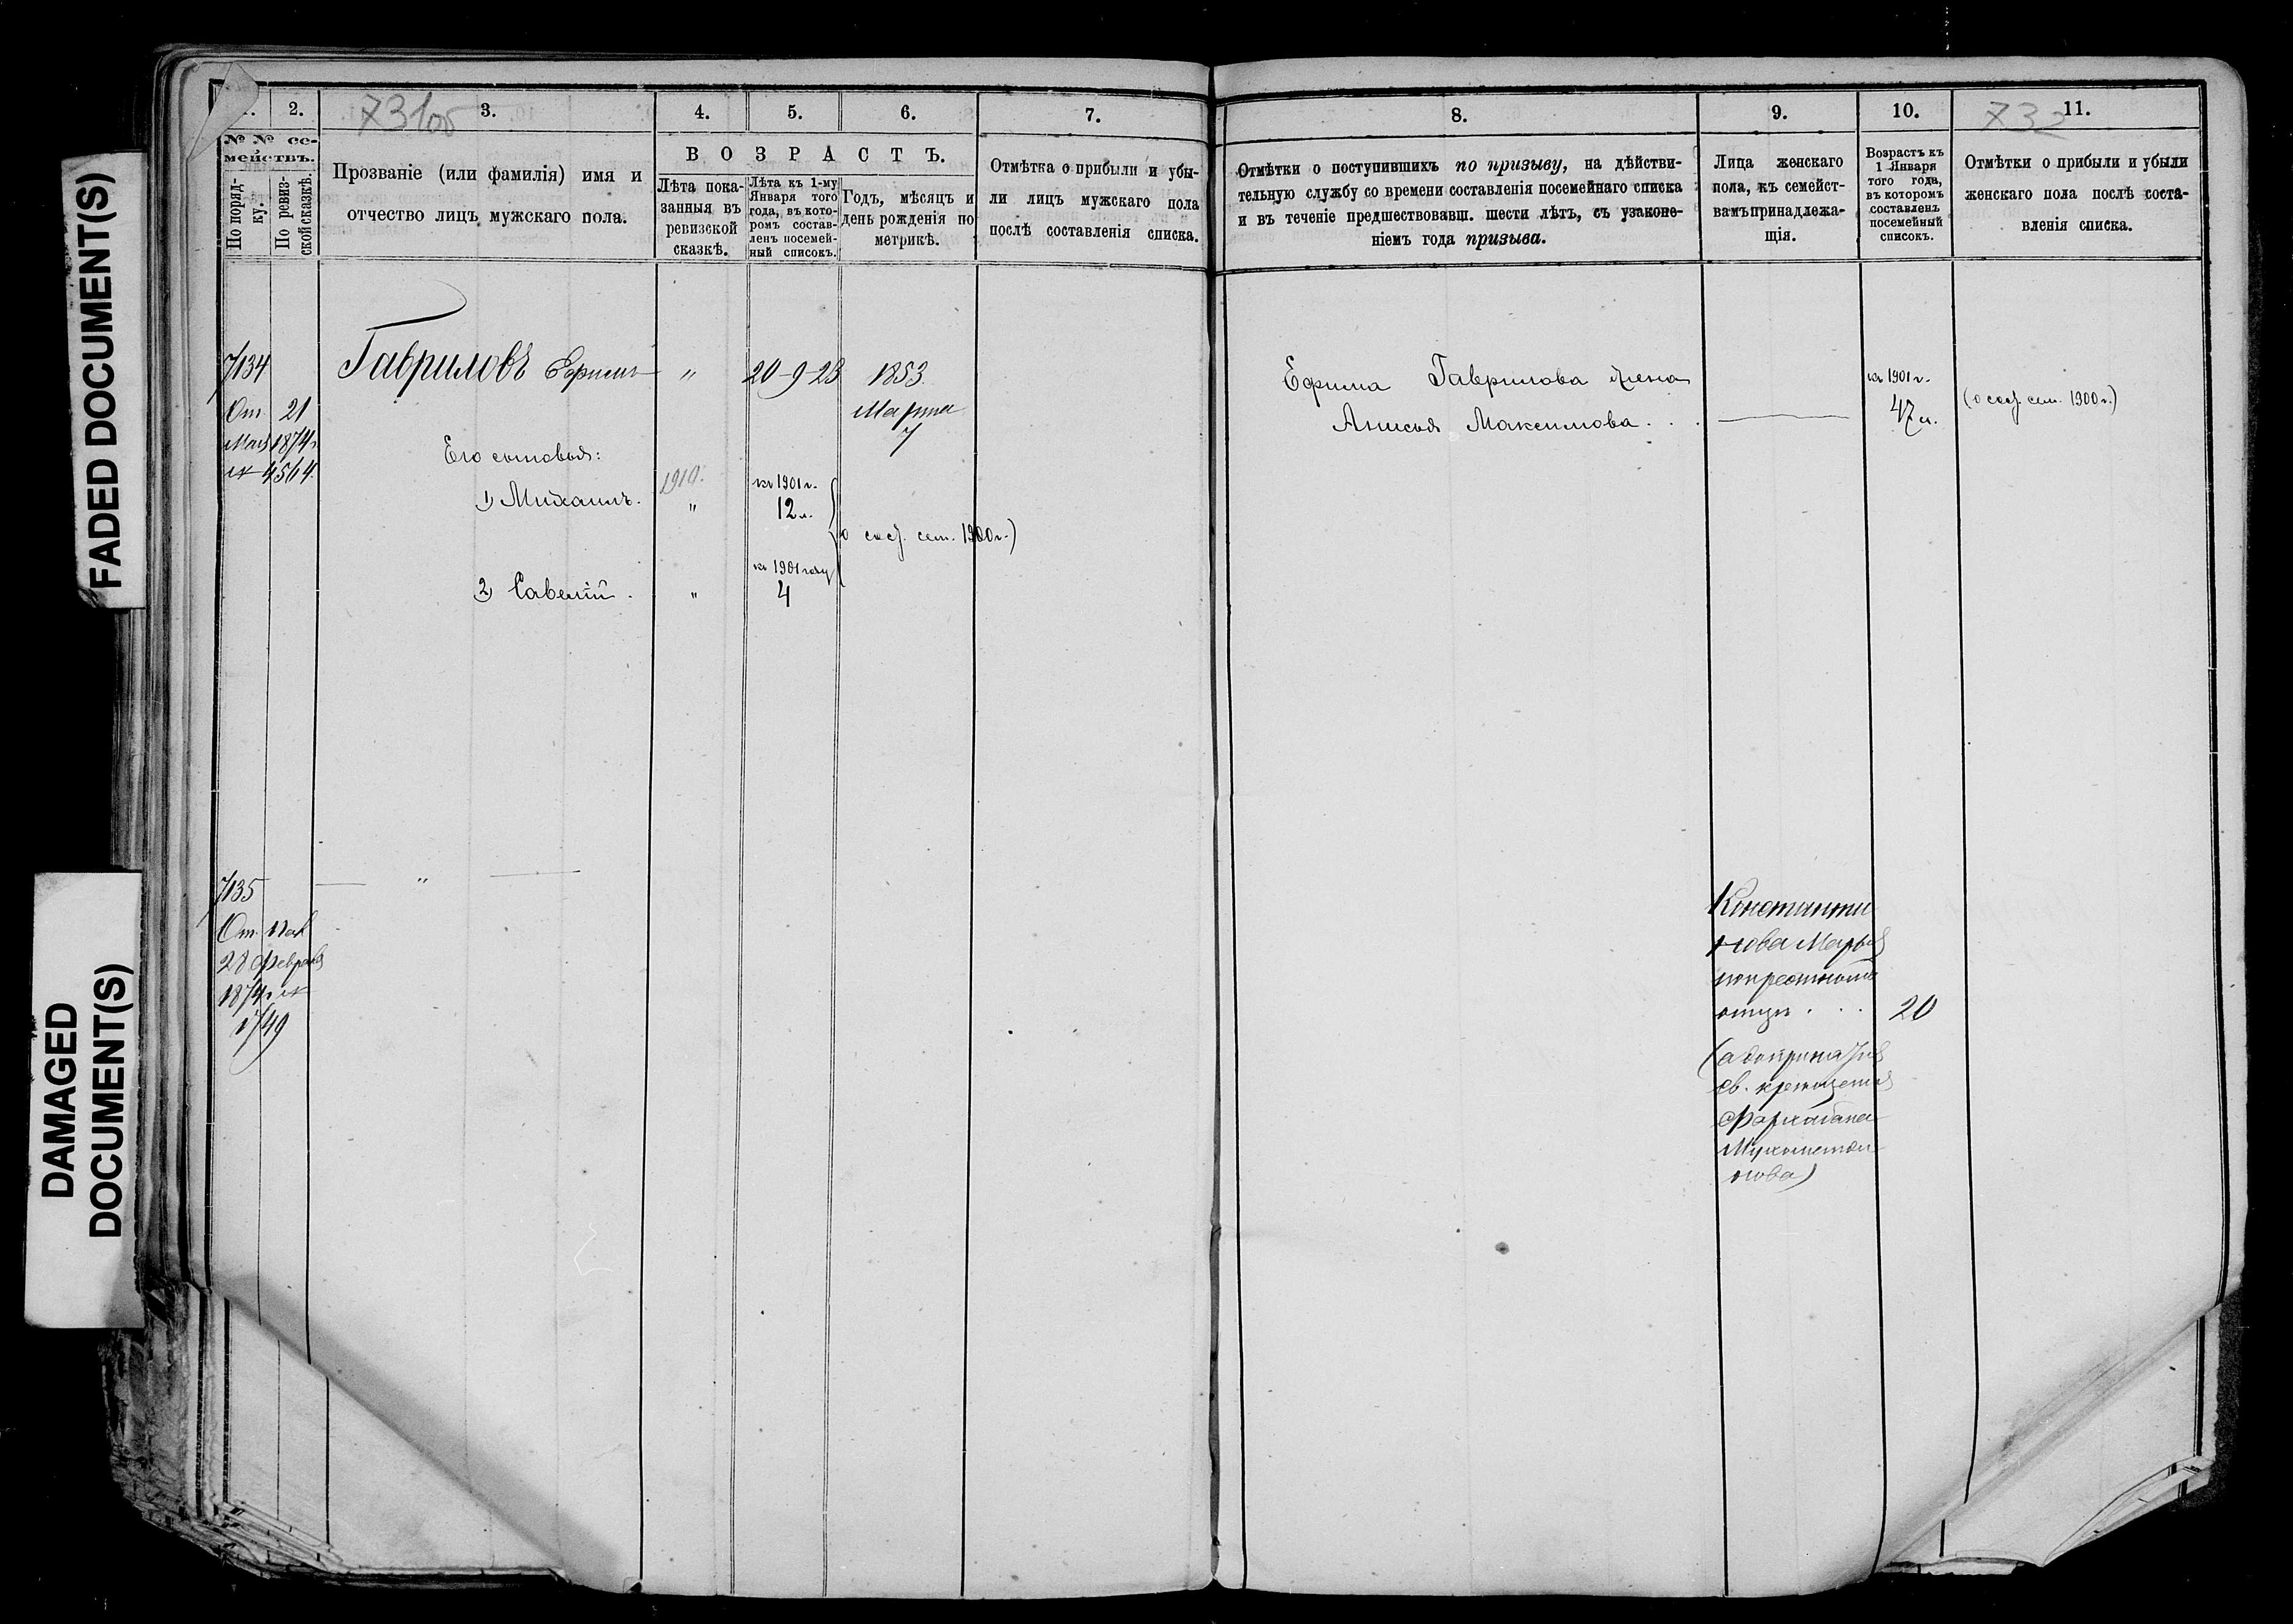 FADED DOCUMENT(S)
DAMAGED
DOCUMENT(S)
731об
1.
2.
3.
4.
5.
6.
7.
№ № се-
мействъ.
По поряд-
ку.
По ревиз-
ской сказкѣ.
Прозваніе (или фамилія) имя и
отчество лицъ мужскаго пола.
ВОЗРАСТЪ.
Лѣта пока-
занныя въ
ревизской
сказкѣ.
Лѣта къ 1-му
Января того
года, въ кото-
ромъ состав-
ленъ посемей-
ный списокъ.
Годъ, мѣсяцъ и
день рожденія по
метрикѣ.
Отмѣтка о прибыли и убы-
ли лицъ мужскаго пола
послѣ составленія списка.
7134
От 21
Мая 1874 г
№ 4564.
Гавриловъ Ефимъ
"
20-9-23
1853.
Марта
7
Его сыновья:
1) Михаилъ.
1910.
"
къ 1901 г.
12 л.
(о сост. сем. 1900 г.)
2) Савелій.
"
къ 1901 году
4
7135
От
28 Февраля
1874 г №
1749
"
732
8.
9.
10.
11.
Отмѣтки о поступившихъ по призыву, на дѣйстви-
тельную службу со времени составленія посемейнаго списка
и въ теченіе предшествовавш. шести лѣтъ, съ узаконе-
ніемъ года призыва.
Лица женскаго
пола, къ семейст-
вамъ принадлежа-
щія.
Возрастъ къ
1 Января
того года,
въ которомъ
составленъ
посемейный
списокъ.
Отмѣтки о прибыли и убыли
женскаго пола послѣ соста-
вленія списка.
Ефима Гаврилова жена
Анисья Максимова . . .
къ 1901 г.
47 л.
(о сост. сем. 1900 г.)
Константи
нова Марья
по крестному
отцу . . .
20
(а до принятія
св. крещенія
Мухаметзя
нова)